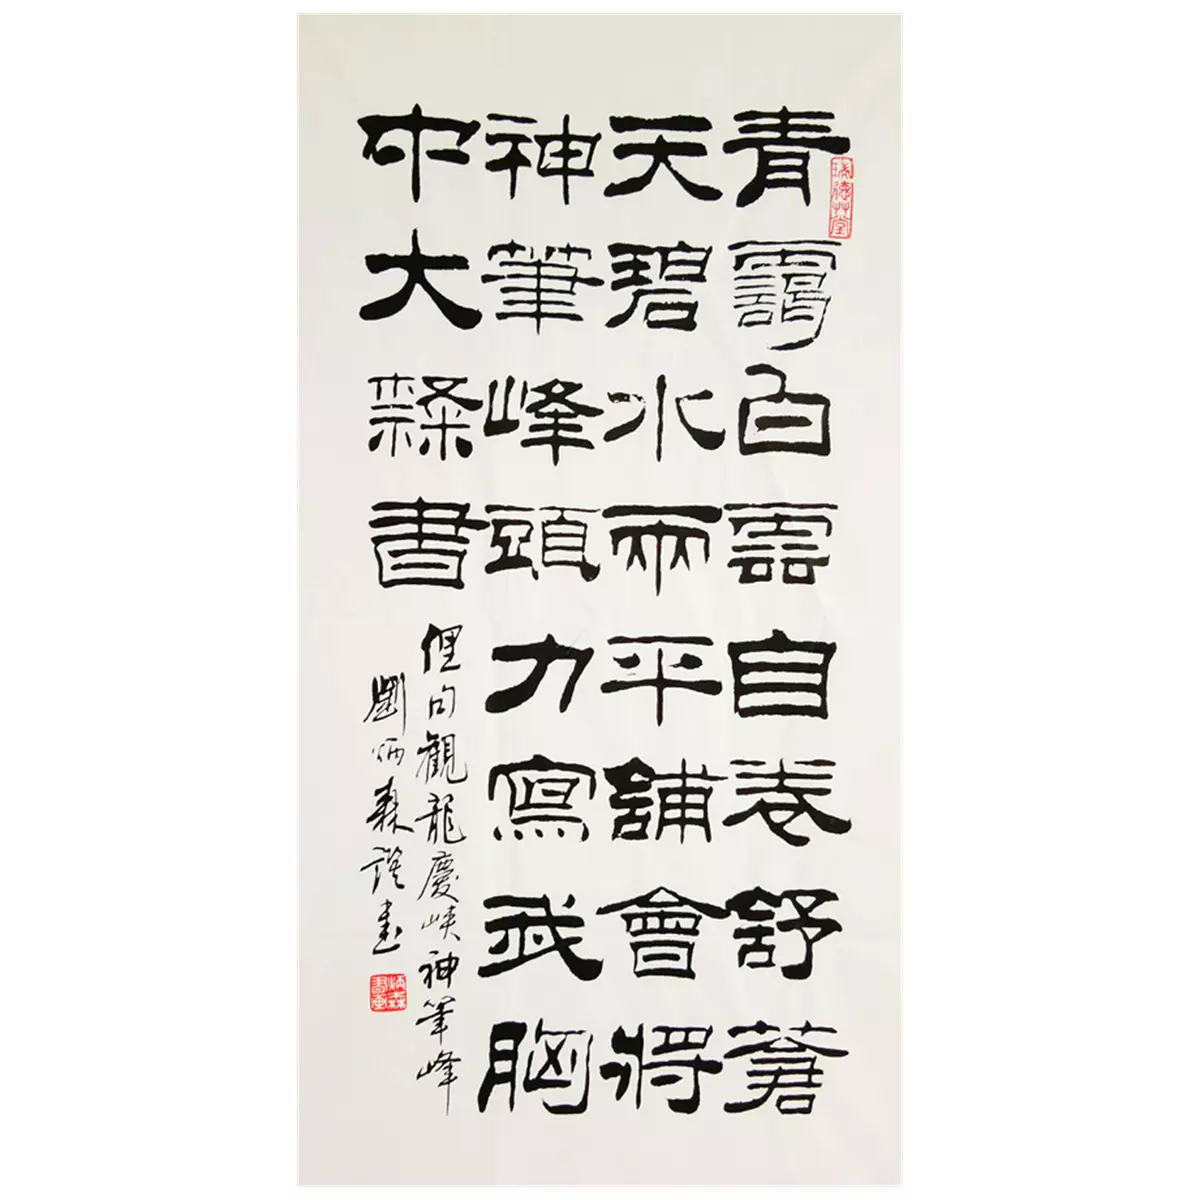 青靄白雲自卷舒蒼
天碧水兩平舖會將
神筆峰頭力寫我胸
中大隸書
俚句觀龍慶峽神筆峰
劉炳森書
炳森書畫